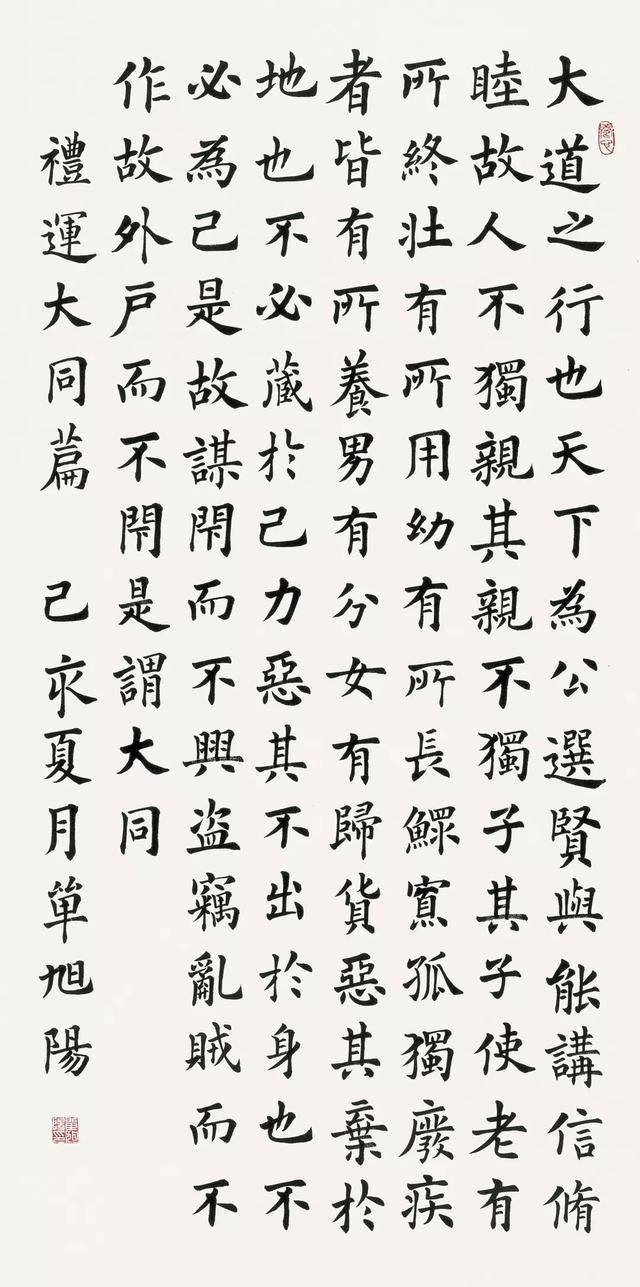 大道之行也天下為公選賢與能講信脩
睦故人不獨親其親不獨子其子使老有
所終壯有所用幼有所長鰥寡孤獨廢疾
者皆有所養男有分女有歸貨惡其棄於
地也不必藏於己力惡其不出於身也不
必為己是故謀閇而不興盜竊亂賊而不
作故外戶而不閇是謂大同
禮運大同篇 己亥夏月單旭陽